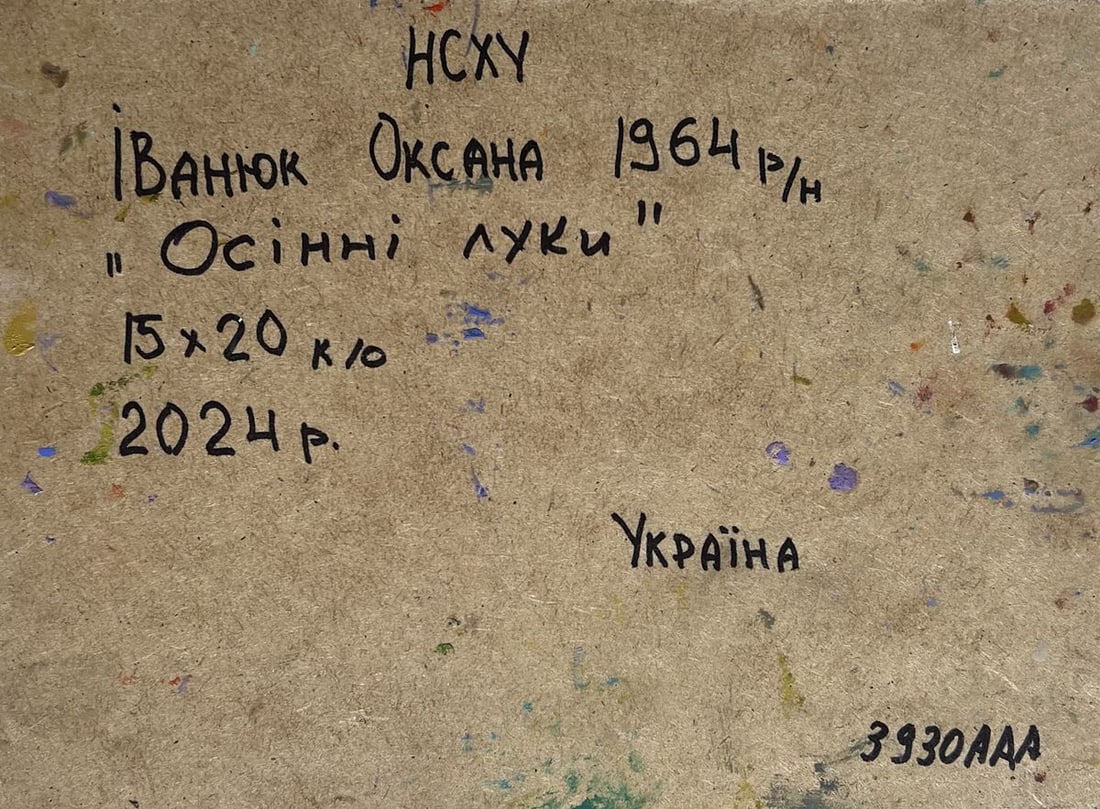 НСХУ
Іванюк Оксана 1964 р/н
„Осінні луки"
15х20 к/о
2024 р.
Україна
3930АДА